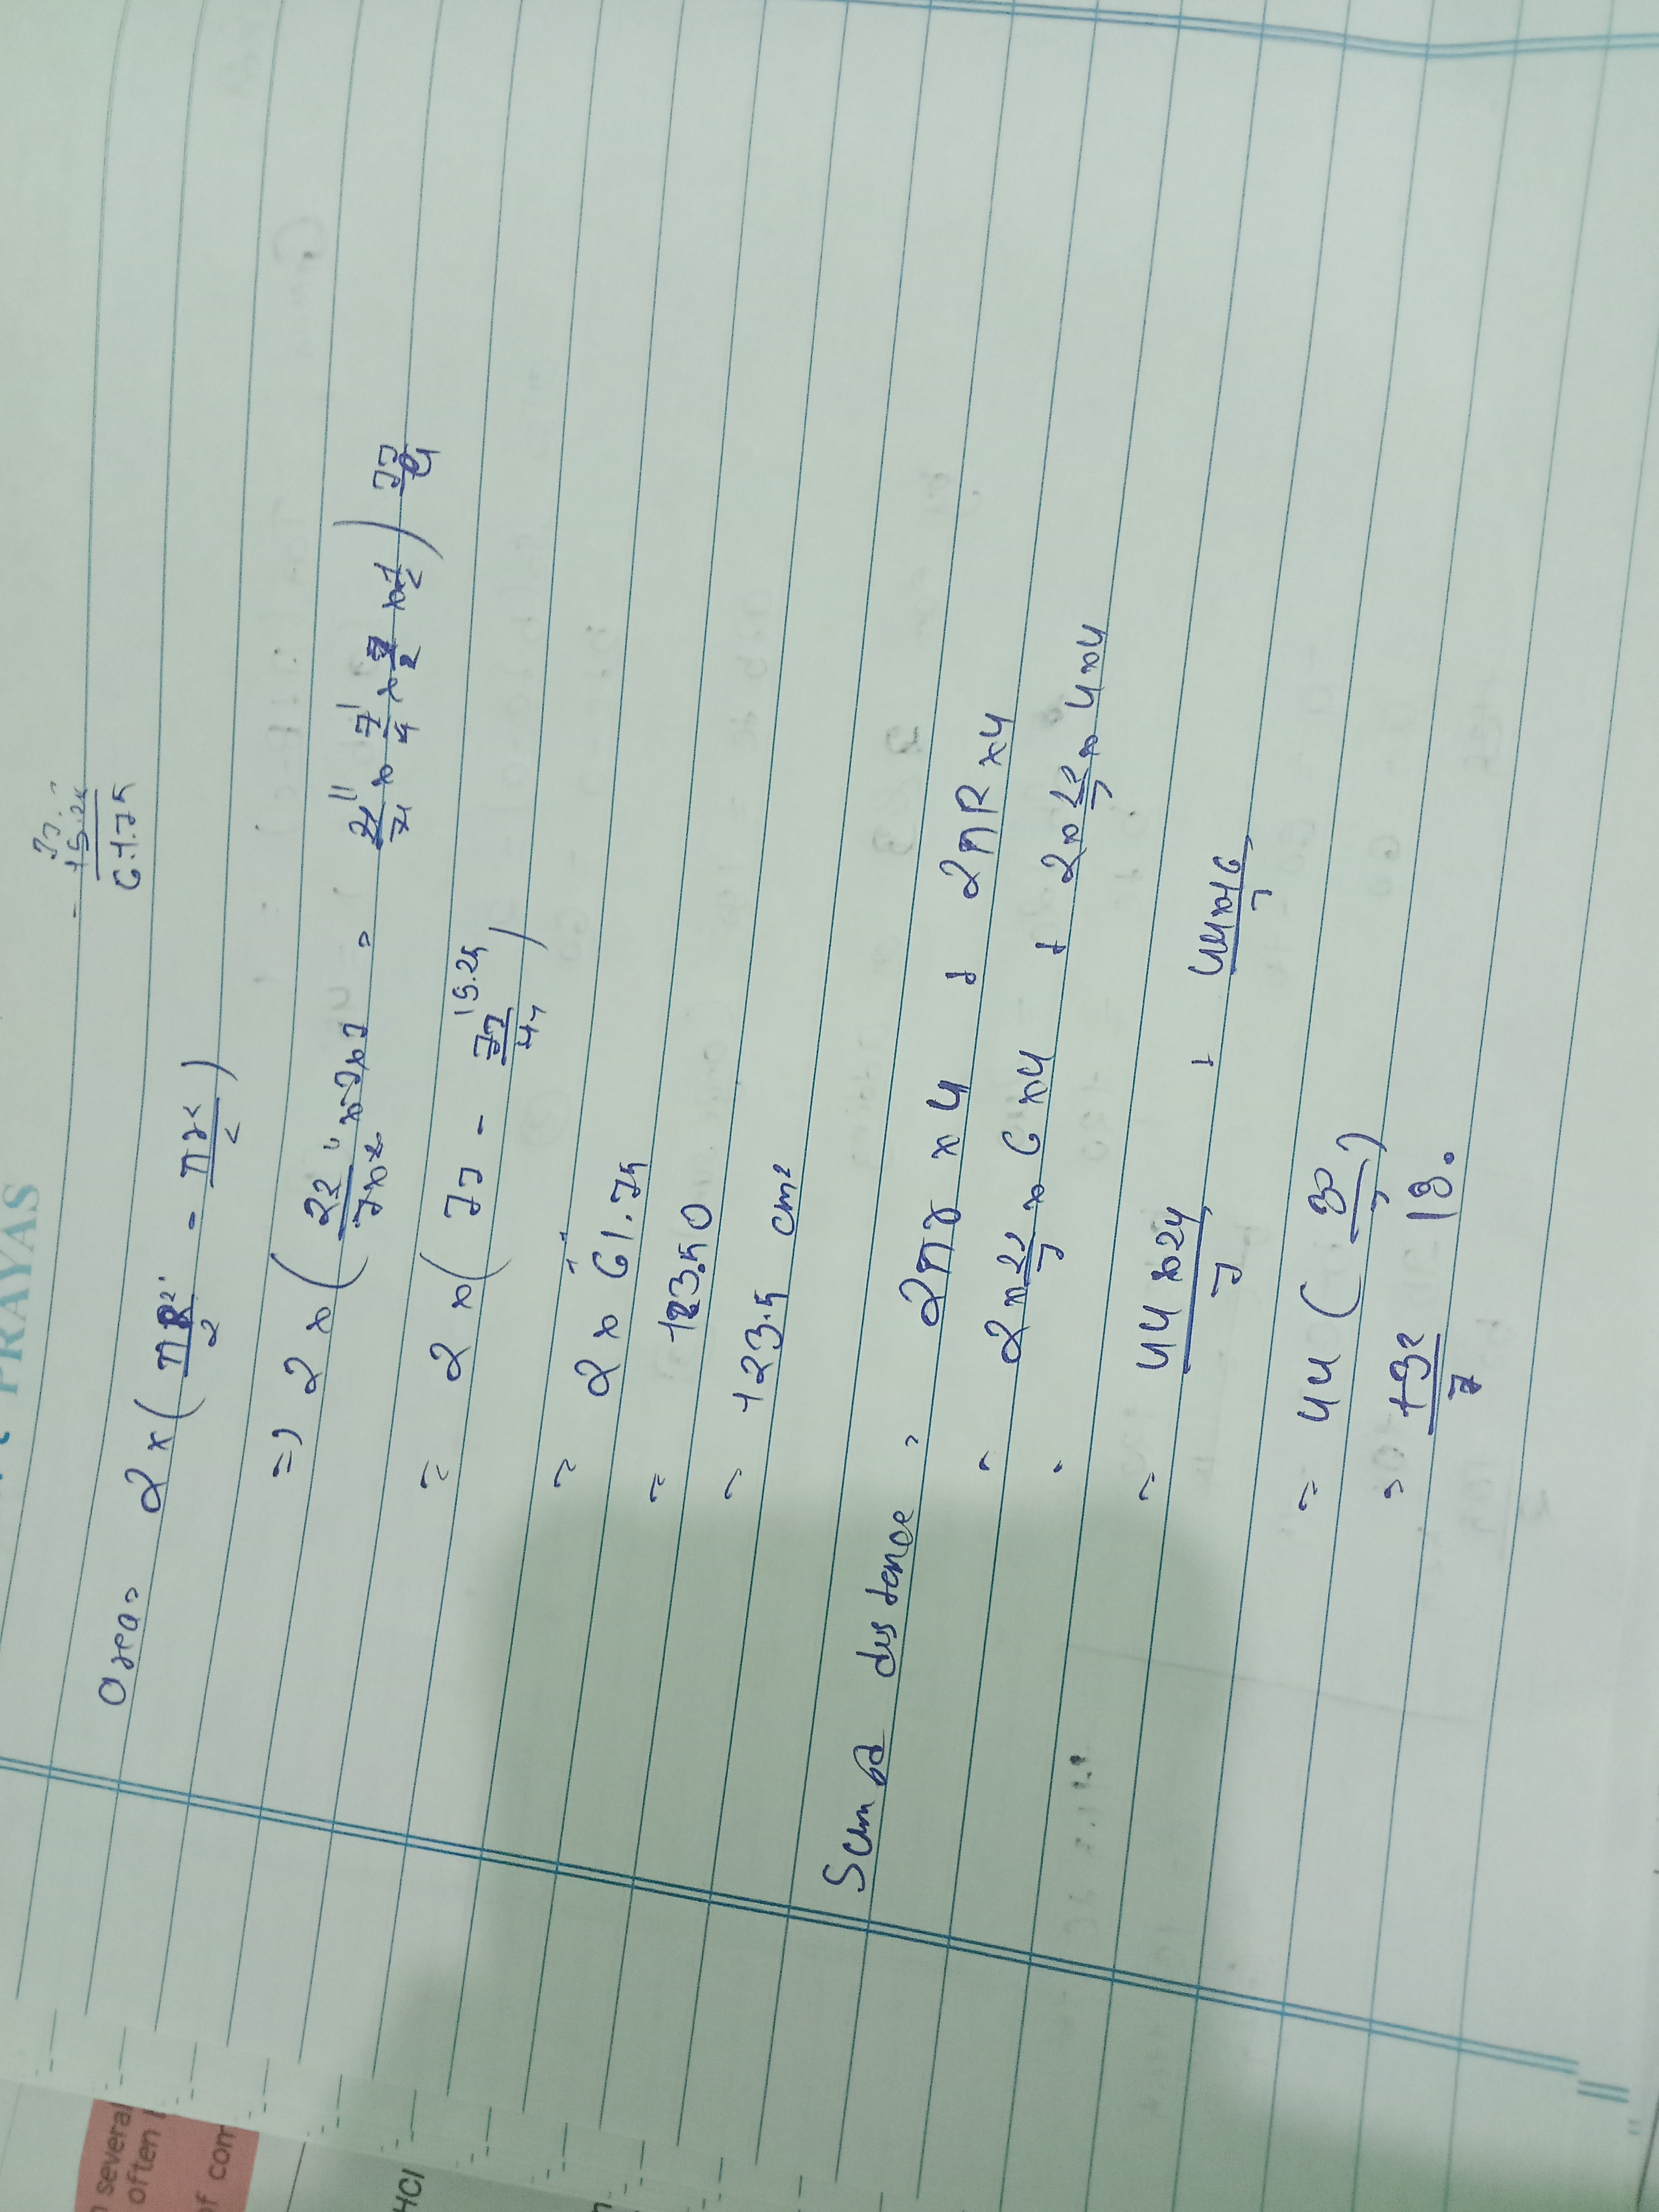 PRAYAS
77.
- 15.25
61.75
Area = 2 × ( πR²/2 - πr²/2 )
=) 2 × ( 22/7×2 × 7 × 7 = ( 22/7 × 7/4 × 7/2 × 1/2 ) 77/4
= 2 × ( 77 - 77/4 15.25 )
= 2 × 61.75
= 123.50
= 123.5 cm²
Sum of distence = 2πr × 4 + 2πR × 4
= 2 × 22/7 × 6 × 4 + 2 × 22/7 × 4 × 4
= 44 × 24/7 + 44 × 16/7
= 44 ( /7 )
= /7
several
often
of com
HCl